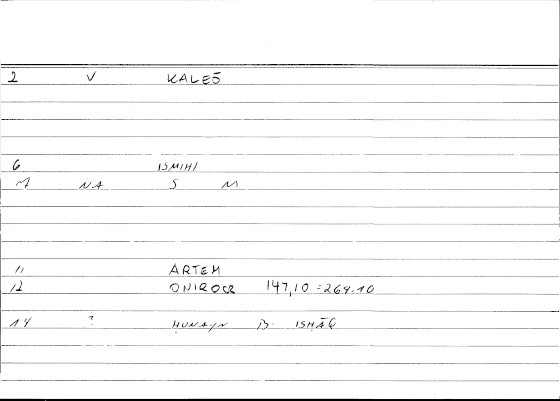 2 V KALEŠ
6 ISMIHI
M NA S M
11 ARTEM
12 ONIROCR 147,10 = 264.10
14 ? ḤUNAYN B. ISḤĀQ